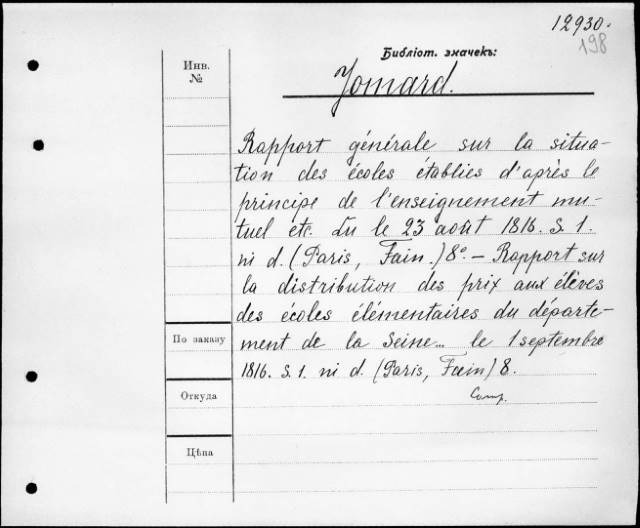 12930.
198
Библіот. значекъ:
Инв.
№
Jomard.
Rapport générale sur la situa-
tion des écoles établies d'après le
principe de l'enseignement mu-
tuel etc. Lu le 23 août 1816. S. 1.
ni d. (Paris, Fain.) 8°. — Rapport sur
la distribution des prix aux élèves
des écoles élémentaires du départe-
ment de la Seine... le 1 septembre
1816. S. 1. ni d. (Paris, Fain) 8.
По заказу
Откуда
Цѣна